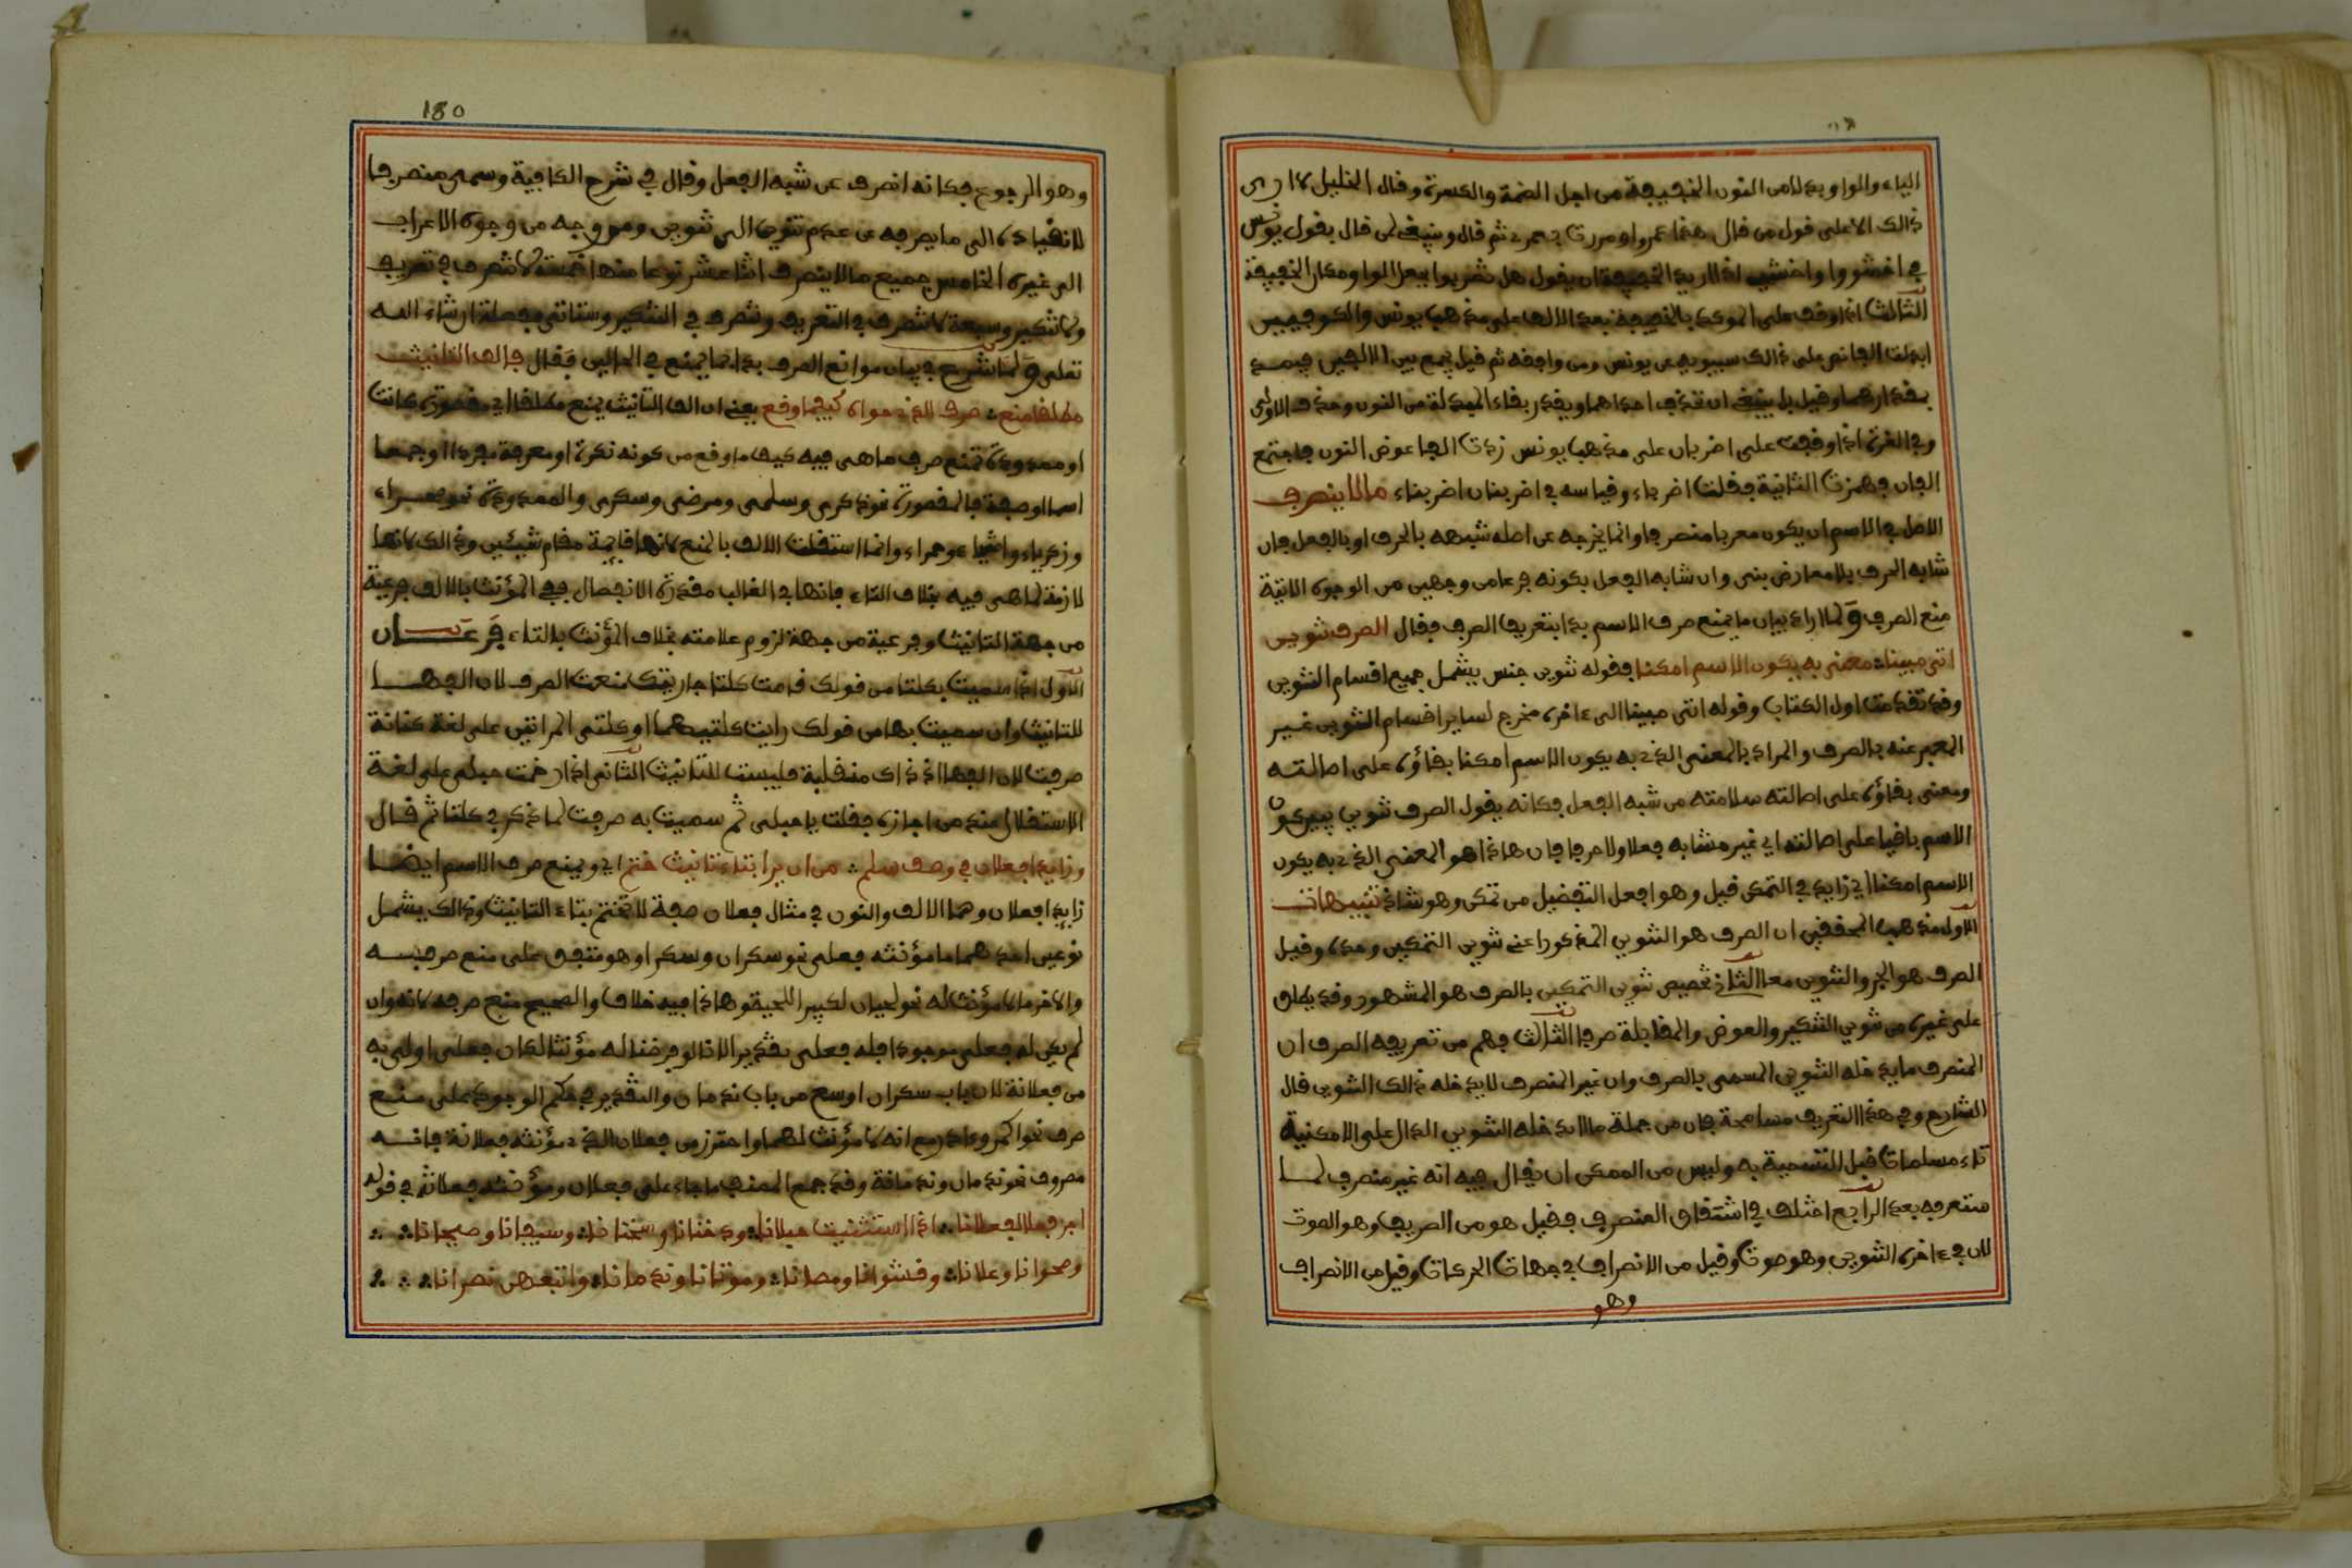 الياء والواو بدلا من النون الخفيفة من اجل الضمة والكسرة وقال الخليل لا ارى
ذالك الا على قول من قال هذا عمرو ومررت بعمرى ثم قال وينبغى لمن قال بقول يونس
في اخشووا واخشيى اذا اريد الخفيفة ان يقول هل تضربوا يجعل الواو مكان الخفيفة
الثالث اذا وقف على الموكد بالخفيفة بعد الالف على مذهب يونس والكوفيين
ابدلت الفا نص على ذالك سيبويه عن يونس ومن وافقه ثم قيل يجمع بين الالفين فيمد
بمقدارهما وقيل بل ينبغي ان تحذف احداهما ويقدر بقاء المبدلة من النون وحذف الاولى
وفي الغرة اذا وقفت على اضربان على مذهب يونس زدت الفا عوض النون فاجتمع
الفان فهمزت الثانية فقلت اضرباء وقياسه في اضربنان اضربناء ما لا ينصرف
الاصل في الاسم ان يكون معربا منصرفا وانما يخرجه عن اصله شبهه بالحرف او بالفعل فان
شابه الحرف بلا معارض بني وان شابه الفعل بكونه فرعا من وجهين من الوجوه الاتية
منع الصرف ولما اراد بيان ما يمنع صرف الاسم بدا بتعريف الصرف فقال الصرف تنوين
اتى مبينا معنى به يكون الاسم امكنا فقوله تنوين جنس يشمل جميع اقسام التنوين
وقد تقدمت اول الكتاب وقوله اتى مبينا الى ءاخره مخرج لساير اقسام التنوين غير
المعبر عنه بالصرف والمراد بالمعنى الذي به يكون الاسم امكنا بقاؤه على اصالته
ومعنى بقاؤه على اصالته سلامته من شبه الفعل فكانه يقول الصرف تنوين يبين كون
الاسم باقيا على اصالته اي غير مشابه فعلا ولا حرفا فان هاذا هو المعنى الذي به يكون
الاسم امكنا اي زايد في التمكن قيل وهو افعل التفضيل من تمكن وهو شاذ تنبيهات
الاول مذهب المحققين ان الصرف هو التنوين المذكور اعنى تنوين التمكين وحده وقيل
الصرف هو الجر والتنوين معا الثاني تخصيص تنوين التمكين بالصرف هو المشهور وقد يطلق
على غيره من تنوين التنكير والعوض والمقابلة صرفا الثالث فهم من تعريفه الصرف ان
المنصرف ما يدخله التنوين المسمى بالصرف وان غير المنصرف لا يدخله ذالك التنوين قال
الشارح وفي هذا التعريف مسامحة فان من جملة ما لا يدخله التنوين الدال على الامكنية
تاء مسلمات قبل التسمية به وليس من الممكن ان يقال فيه انه غير منصرف لما
ستعرفه بعد الرابع اختلف في اشتقاق المنصرف فقيل هو من الصريف وهو الصوت
لان في ءاخره التنوين وهو صوت وقيل من الانصراف في جهات الحركات وقيل من الانصراف
وهو
180
وهو الرجوع فكانه انصرف عن شبه الفعل وقال في شرح الكافية وسمى منصرفا
لانقياده الى ما يصرفه عن عدم تنوين الى تنوين ومن وجه من وجوه الاعراب
الى غيره الخامس جميع ما لا ينصرف اثنا عشر نوعا منها خمسة لا تنصرف في تعريف
ولا تنكير وسبعة لا تنصرف في التعريف وتنصرف في التنكير وستاتي مفصلة ان شاء الله
تعلى ولما شرع في بيان موانع الصرف بدا بما يمنع في الحالين فقال فالف التانيث
مطلقا منع صرف الذي حواه كيفما وقع يعني ان الف التانيث يمنع مطلقا اي مقصورة كانت
او ممدودة تمنع صرف ما هي فيه كيف ما وقع من كونه نكرة او معرفة مفردا او جمعا
اسما او صفة فالمقصورة نحو ذكرى وسلمى ومرضى وسكرى والممدودة نحو صحراء
وزكرياء واشياء وحمراء وانما استقلت الالف بالمنع لانها قايمة مقام شيئين وذالك لانها
لازمة لما هي فيه بخلاف التاء فانها في الغالب مقدرة الانفصال ففي المؤنث بالالف فرعية
من جهة التانيث وفرعية من جهة لزوم علامته بخلاف المؤنث بالتاء فرعان
الاول اذا سميت بكلتا من قولك قامت كلتا جاريتيك منعت الصرف لان الفها
للتانيث وان سميت بها من قولك رايت كلتيهما او كلتي المراتين على لغة كنانة
صرفت لان الفها اذ ذاك منقلبة فليست للتانيث الثاني اذا رخمت حبلى على لغة
الاستقلال عند من اجازه فقلت يا حبلى ثم سميت به صرفت لما ذكر في كلتا ثم قال
وزايدا فعلان في وصف سلم من ان يرا بتاء تانيث ختم اي ويمنع صرف الاسم ايضا
زايدا فعلان وهما الالف والنون في مثال فعلان صفة لا تختم بتاء التانيث وذالك يشمل
نوعين احدهما ما مؤنثه فعلى نحو سكران وسكرا وهو متفق على منع صرفه
والاخر ما لا مؤنث له نحو لحيان لكبير اللحية وهاذا فيه خلاف والصحيح منع صرفه لانه وان
لم يكن له فعلى موجودا فله فعلى تقديرا لانا لو فرضنا له مؤنثا لكان فعلى اولى به
من فعلانة لان باب سكران اوسع من باب ندمان والتقدير في حكم الوجود بدليل منع
صرف نحو اكمر وءادر مع انه لا مؤنث لهما واحترز من فعلان الذي مؤنثه فعلانة فانه
مصروف نحو ندمان وندمانة وقد جمع المصنف ما جاء على فعلان ومؤنثه فعلانة في قوله
اجز فعلا لفعلانا اذا استثنيت حبلانا ودخنانا وسخنانا وسيفانا وصحيانا
وصوجانا وعلانا وقشوانا ومصانا وموتانا وندمانا واتبعهن نصرانا